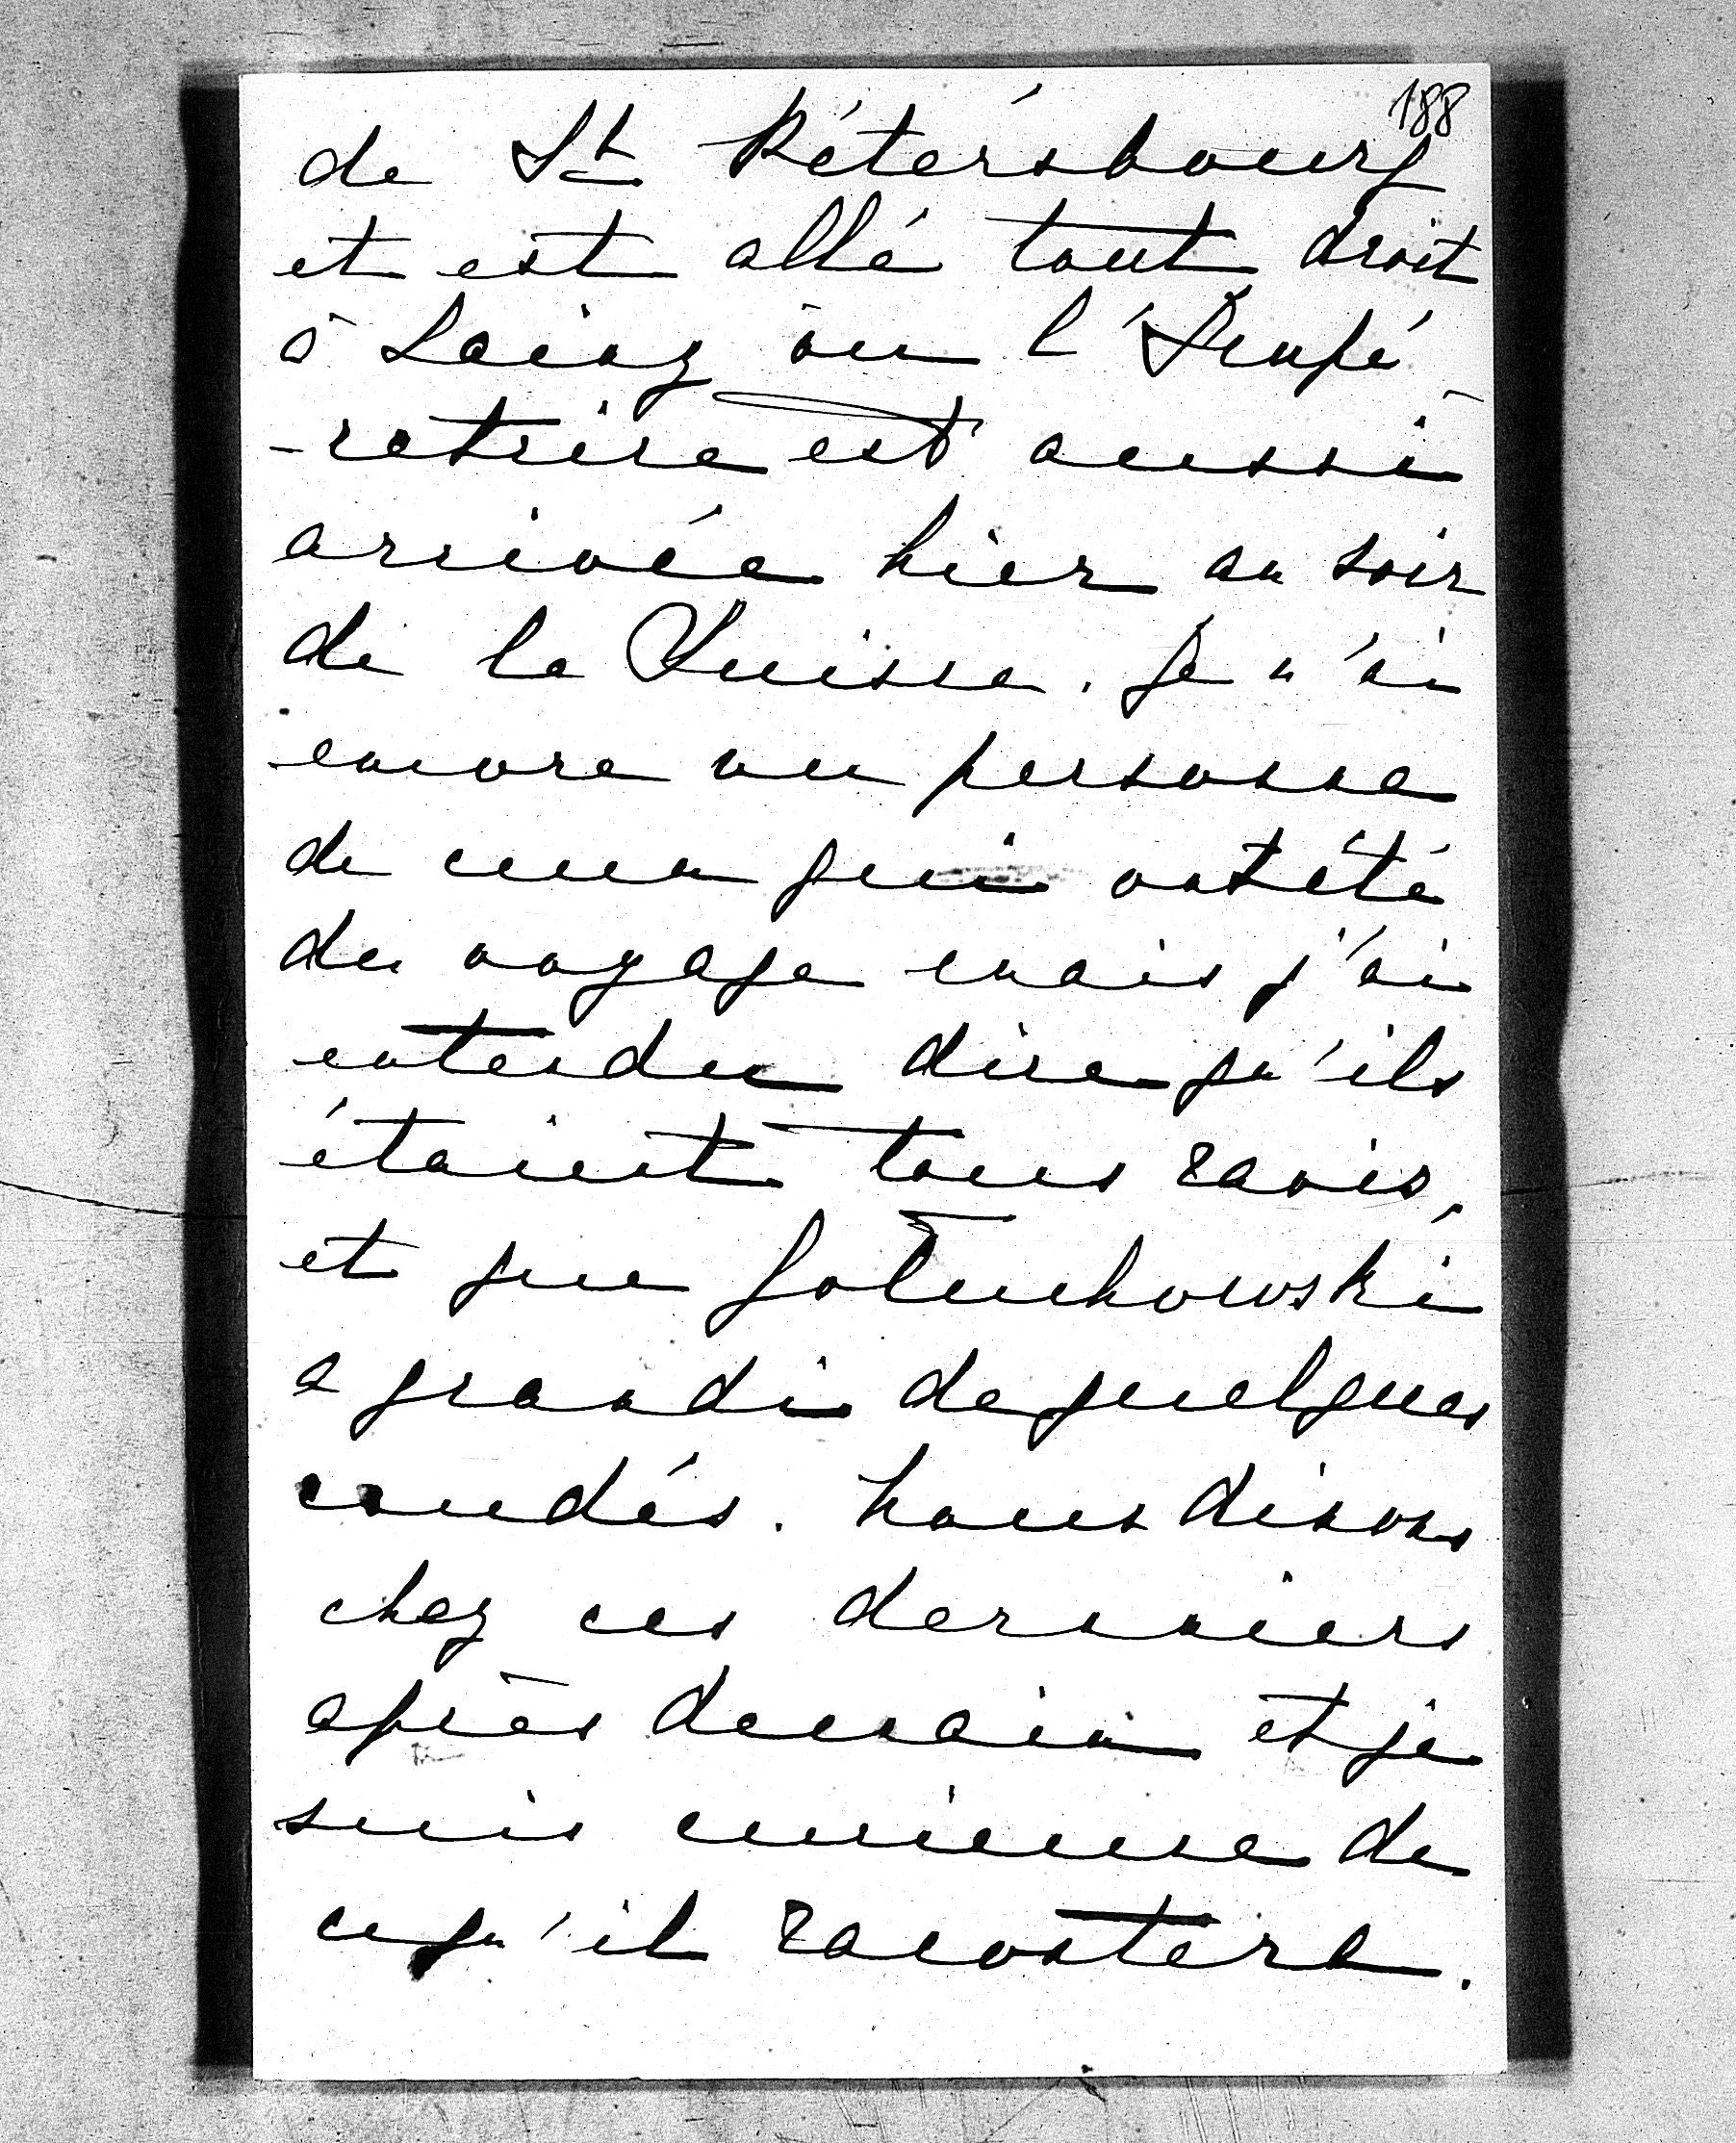 188
de St Pétersbourg
et est allé tout droit
à Lainz où l'Impé
-ratrice est aussi
arrivée hier au soir
de la Suisse. Je n'ai
encore vu personne
de ceux qui ont été
du voyage mais j'ai
entendu dire qu'ils
étaient tous ravis,
et que Goluchowski
a grandi de quelques
coudés. Nous dinons
chez ces derniers
après demain et je
suis curieuse de
ce qu'il racontera.